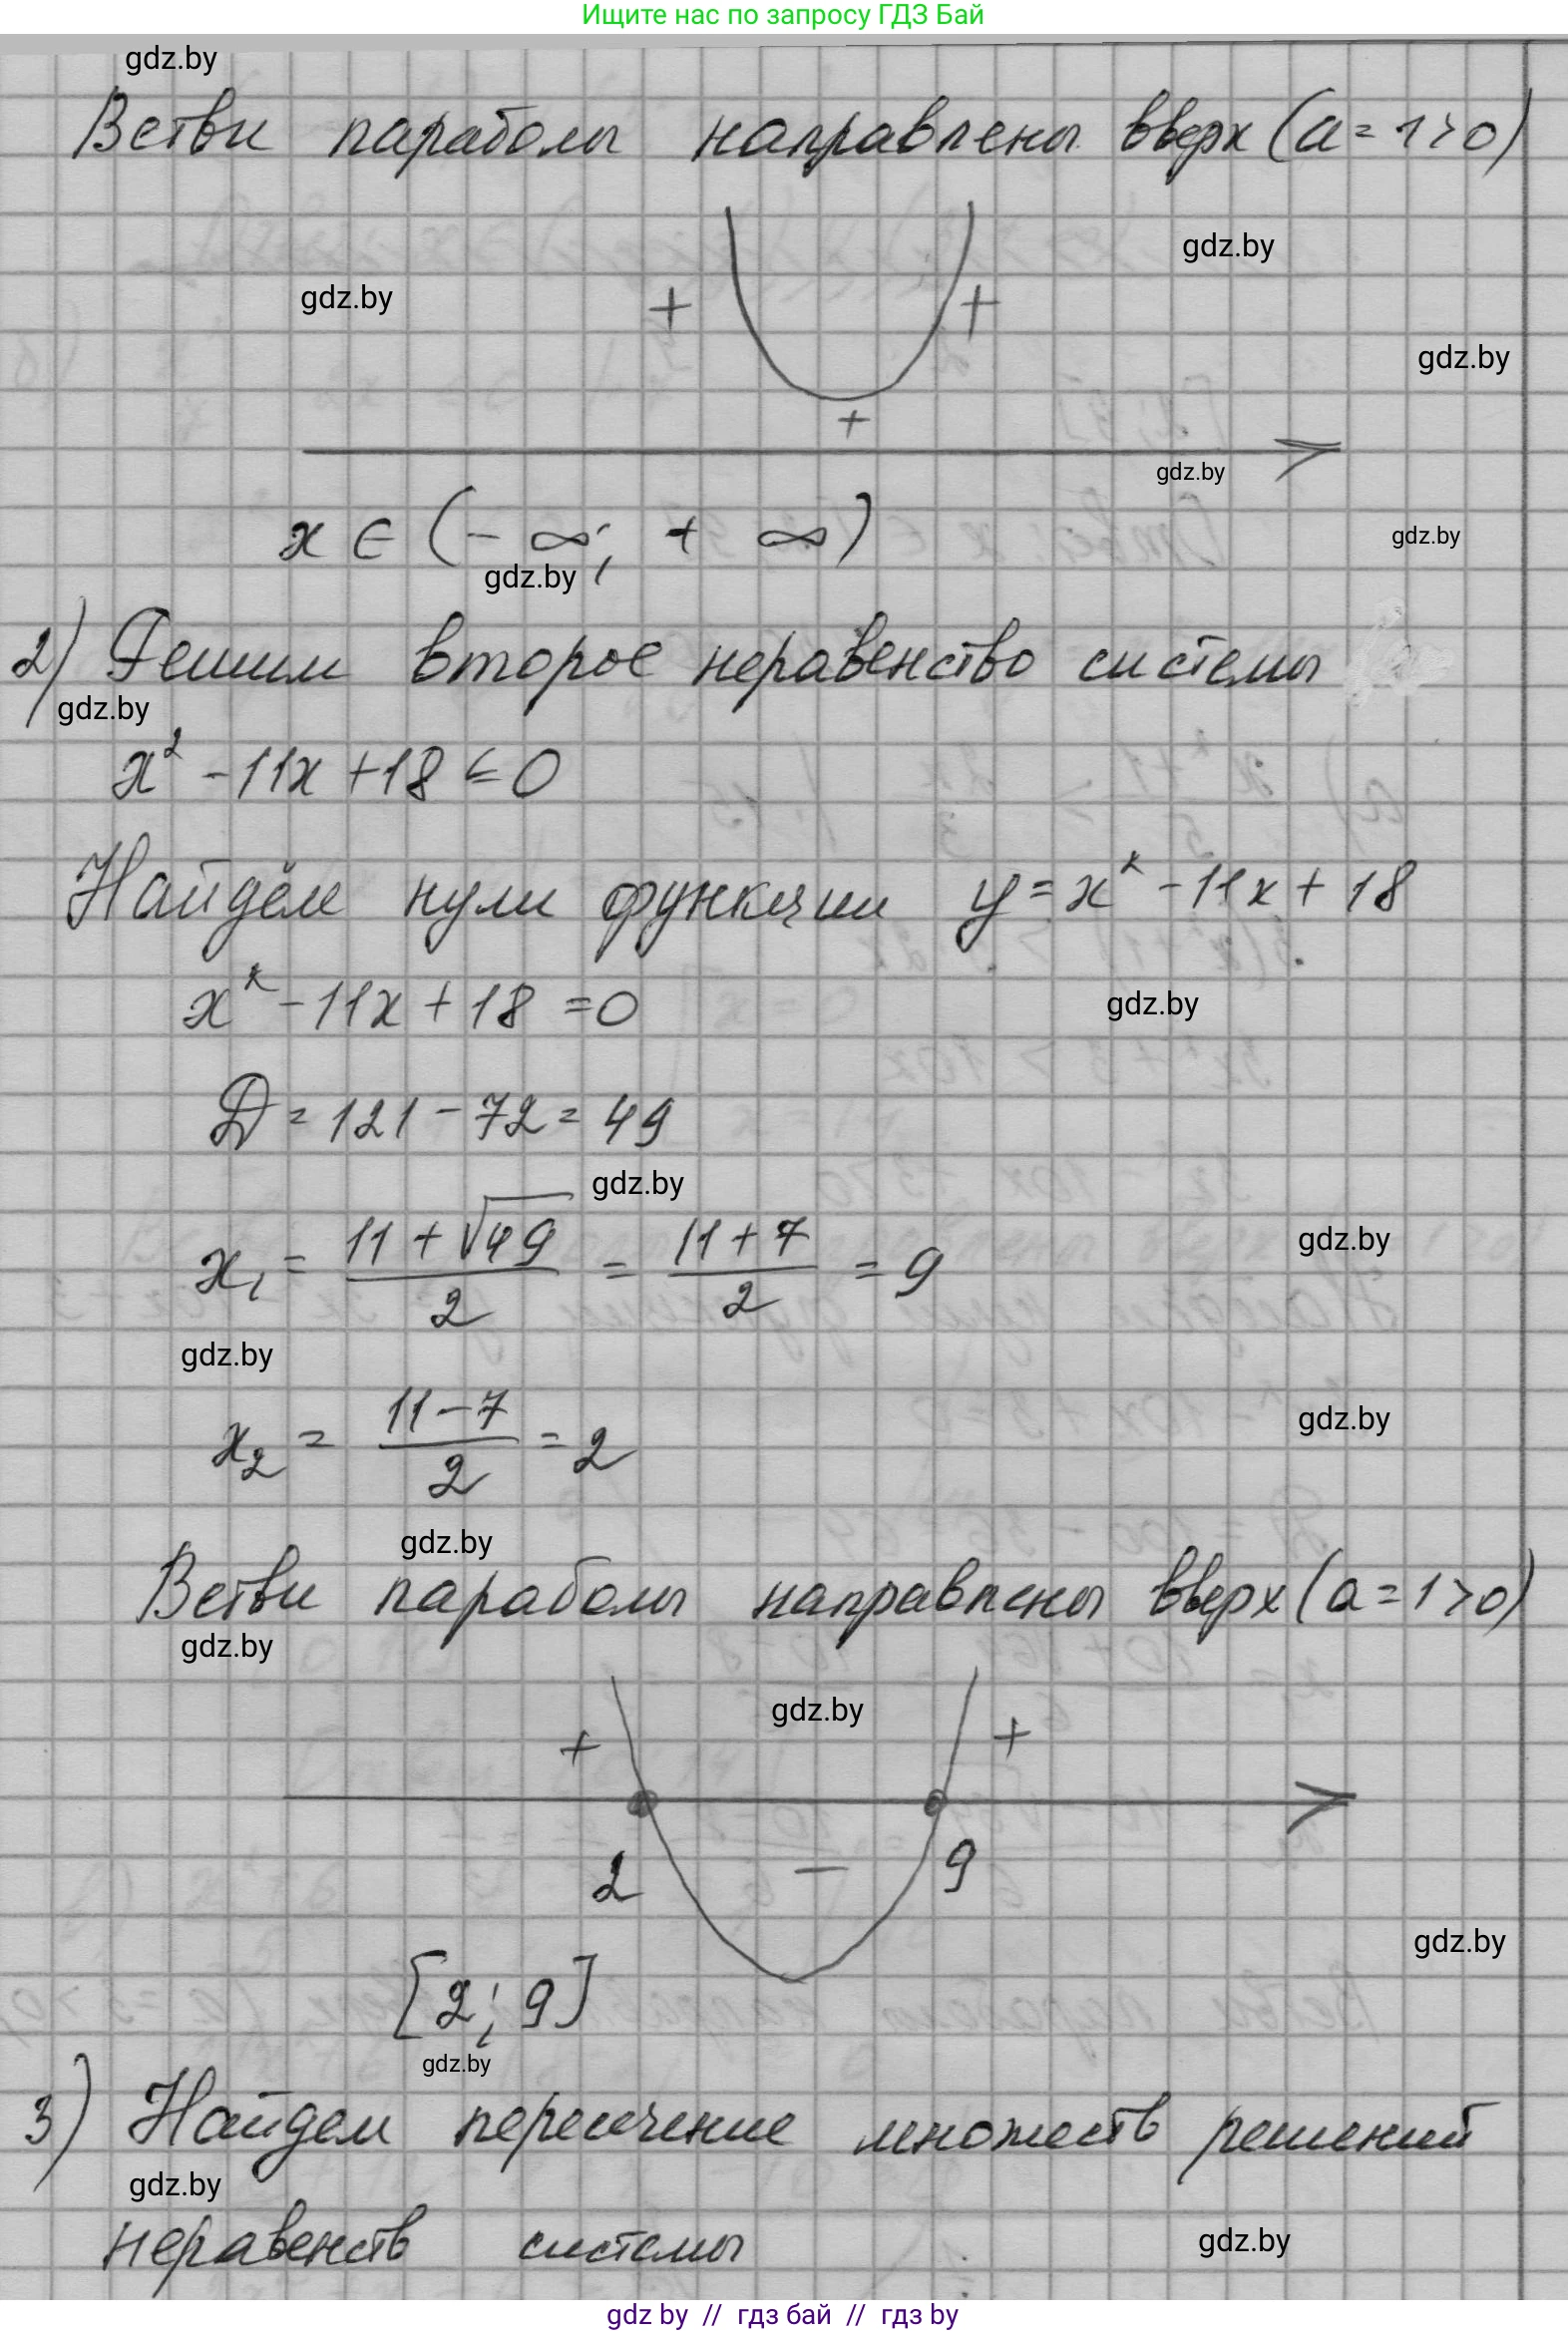 Ищите нас по запросу ГДЗ Бай
gdz.by
Ветви параболы направлены вверх (a = 1 > 0)
gdz.by
gdz.by
+ +
gdz.by
+
gdz.by
x ∈ (- ∞; + ∞)
gdz.by
gdz.by
2) Решим второе неравенство системы
gdz.by
x² - 11x + 18 ≤ 0
Найдём нули функции y = x² - 11x + 18
x² - 11x + 18 = 0
gdz.by
D = 121 - 72 = 49
gdz.by
x₁ = (11 + √49)/2 = (11 + 7)/2 = 9
gdz.by
gdz.by
x₂ = (11 - 7)/2 = 2
gdz.by
gdz.by
Ветви параболы направлены вверх (a = 1 > 0)
gdz.by
gdz.by
+ +
2 - 9
gdz.by
[2; 9]
gdz.by
3) Найдем пересечение множеств решений
gdz.by
неравенств системы
gdz.by
gdz by // гдз бай // гдз by